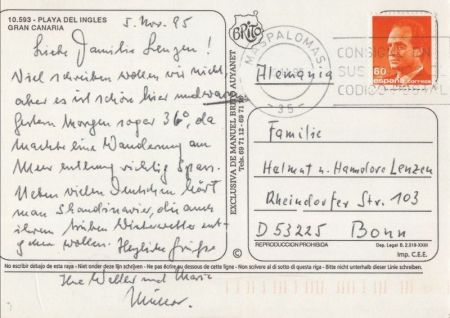 10.593 - PLAYA DEL INGLES
GRAN CANARIA
5. Nov. 95
Liebe Familie Lenzen!
Viel schreiben wollen wir nicht
aber es ist schön hier und warm
gestern Morgen sogar 36°, da
machte eine Wanderung am
Meer entlang richtig Spass.
Neben vielen Deutschen hört
man Skandinavier, die auch
ihrem trüben Winterwetter ent-
gehen wollen. Herzliche Grüße
BRITO
EXCLUSIVA DE MANUEL BRITO AUYANET
Tels. 69 71 12 - 69 71
MASPALOMAS
- 35 -
CONSIGNE EN
SUS
CODIGO POSTAL
60
ESPAÑA
CORREOS
Alemania
Familie
Helmut u. Hannelore Lenzen
Rheindorfer Str. 103
D 53225 Bonn
REPRODUCCION PROHIBIDA
Dep. Legal B. 2.319-XXIII
Imp. C.E.E.
No escribir debajo de esta raya - Niet onder deze lijn schrijven - Ne pas écrire au dessous de cette ligne - Non scrivere al di sotto di questa riga - Bitte nicht unterhalb dieser Linie schreiben.
Ihre Walter und Maria